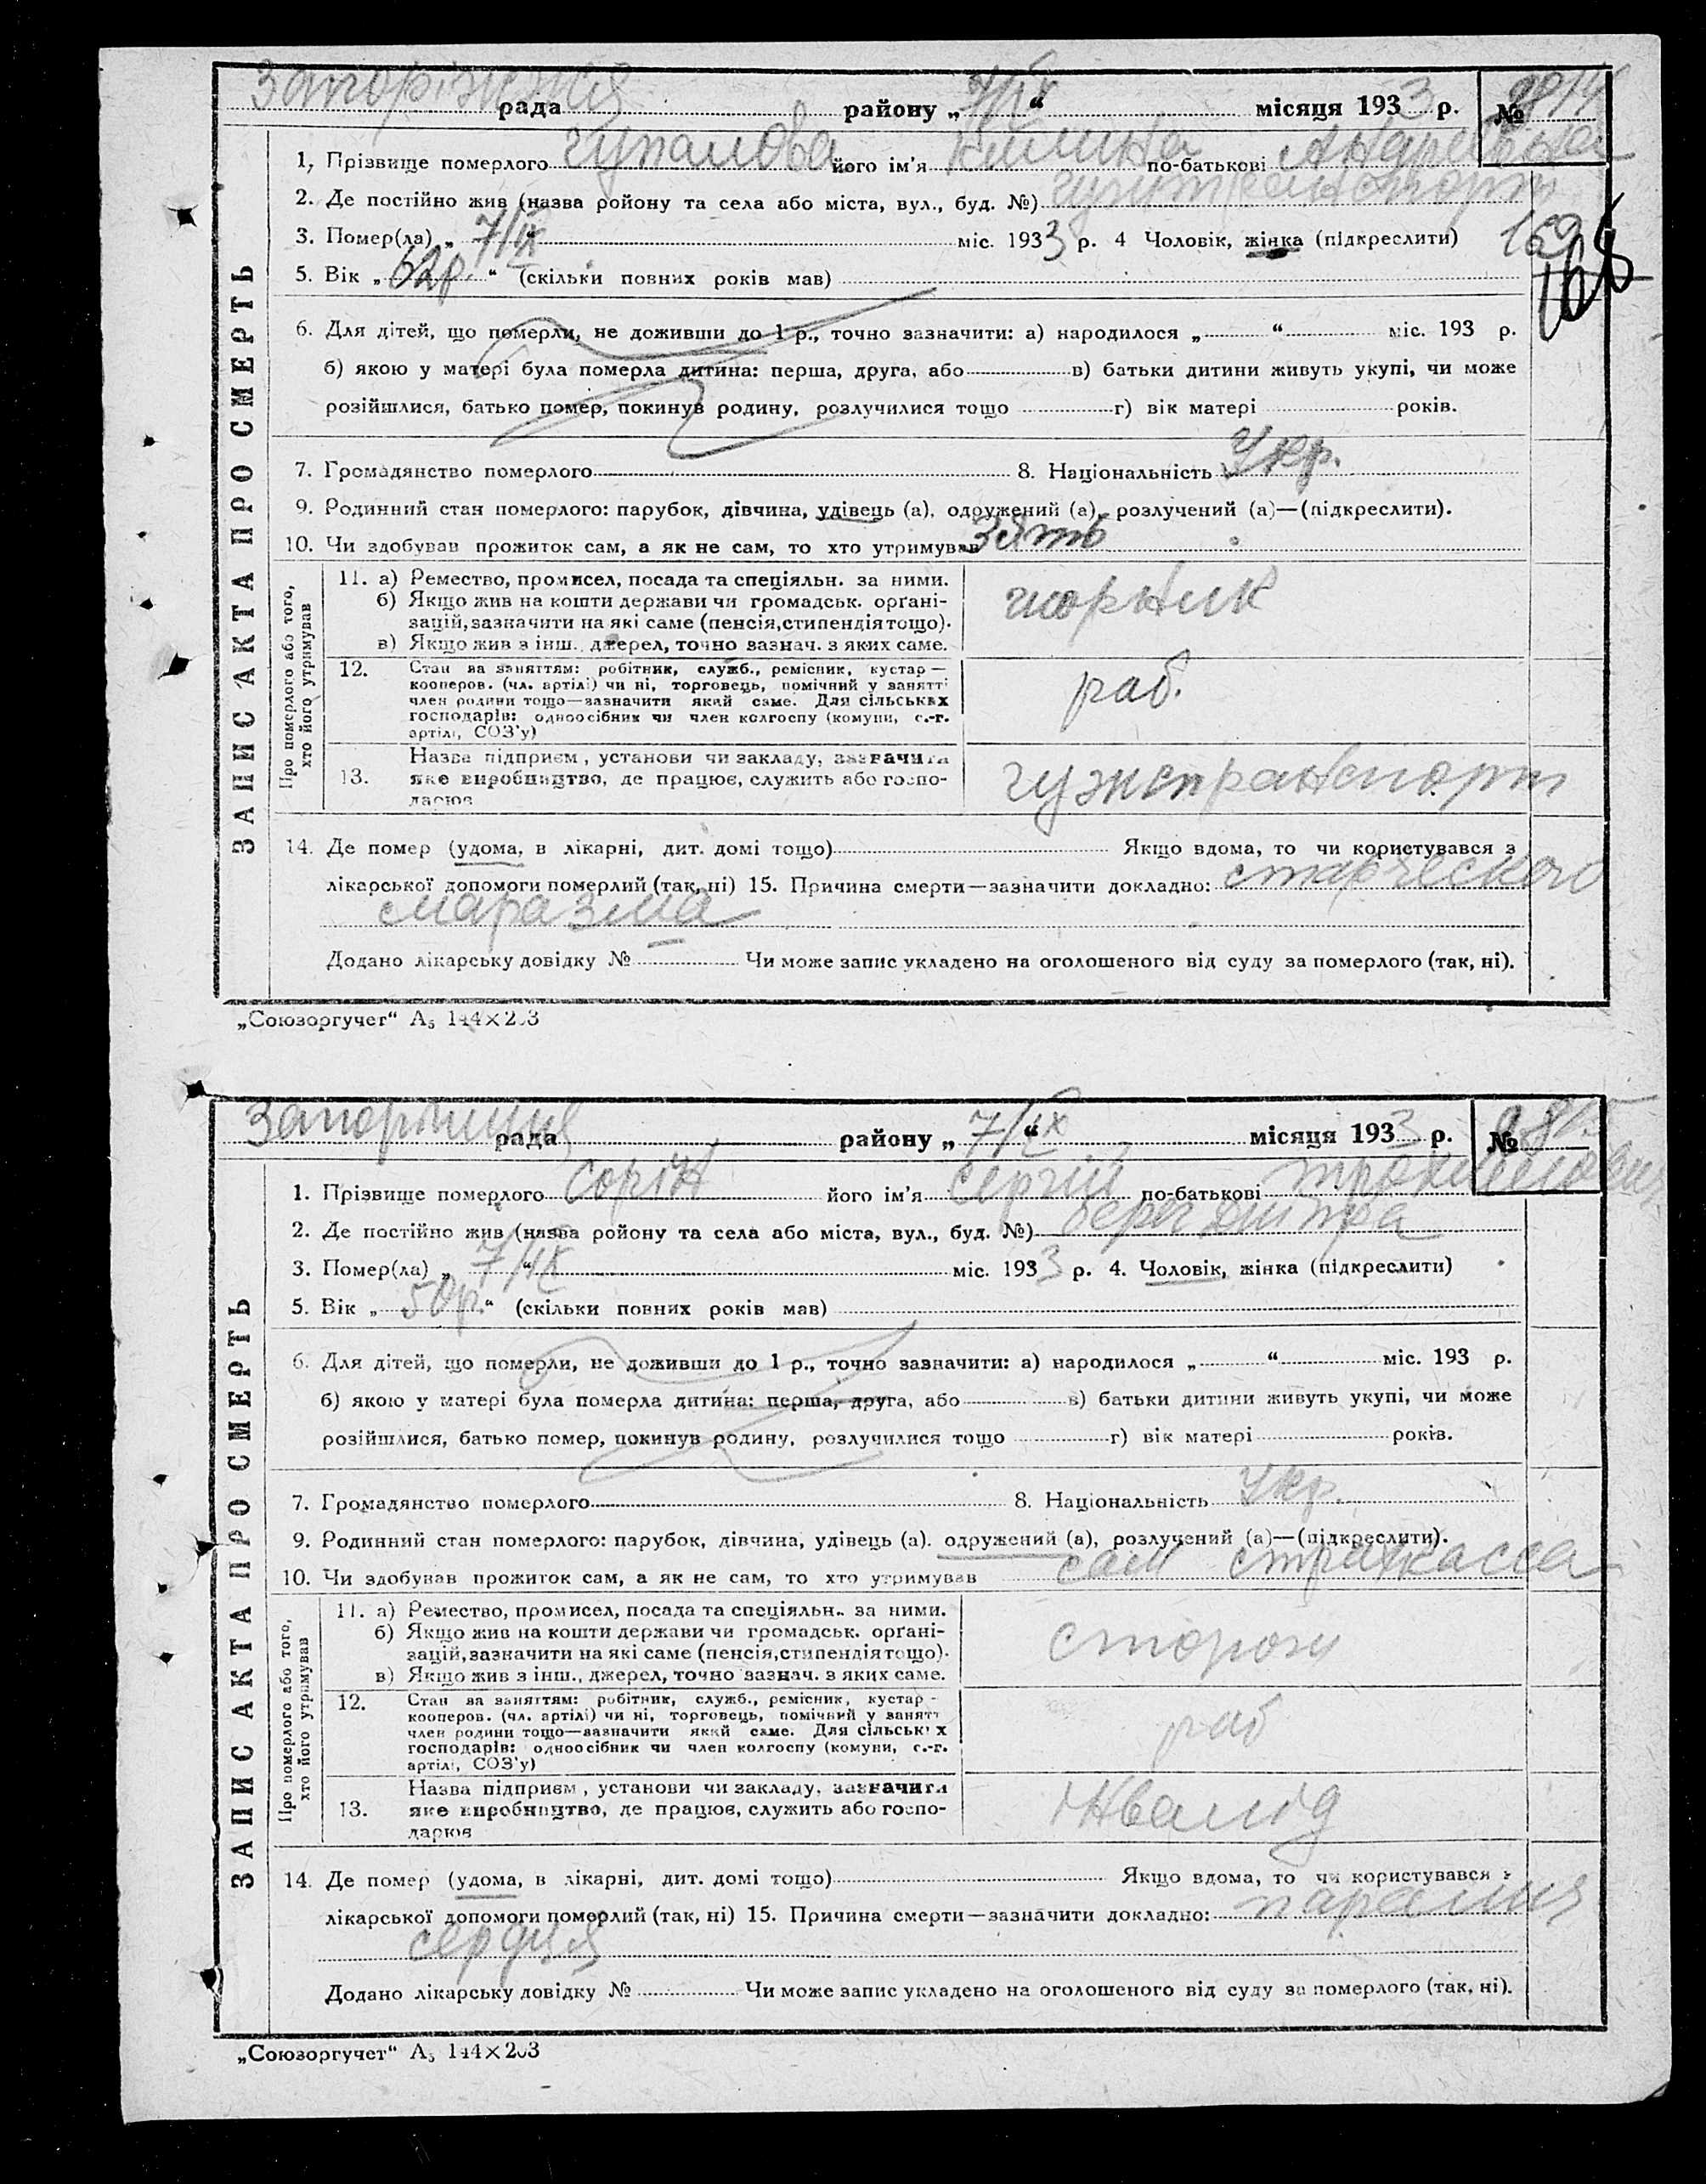 Запоріжжя рада району „ 7/IX “ місяця 1933 р. №
1, Прізвище померлого його ім'я по-батькові
2. Де постійно жив (назва ройону та села або міста, вул., буд. №) гужтранспорт
3. Помер(ла) „ 7/IX “ міс. 1933 р. 4 Чоловік, жінка (підкреслити) 169
168
5. Вік „ 62р. “ (скільки повних років мав)
6. Для дітей, що померли, не доживши до 1 р., точно зазначити: а) народилося „ “ міс. 193 р.
б) якою у матері була померла дитина: перша, друга, або в) батьки дитини живуть укупі, чи може
розійшлися, батько помер, покинув родину, розлучилися тощо г) вік матері років.
7. Громадянство померлого 8. Національність Укр.
9. Родинний стан померлого: парубок, дівчина, удівець (а), одружений (а), розлучений (а)—(підкреслити).
10. Чи здобував прожиток сам, а як не сам, то хто утримував зять
ЗАПИС АКТА ПРО СМЕРТЬ
Про померлого або того, хто його утримував
11. а) Ремество, промисел, посада та спеціяльн. за ними.
б) Якщо жив на кошти держави чи громадськ. орґані-
зацій, зазначити на які саме (пенсія, стипендія тощо).
в) Якщо жив з інш. джерел, точно зазнач. з яких саме.
12. Стан за заняттям: робітник, служб., ремісник, кустар —
кооперов. (чл. артілі) чи ні, торговець, помічний у занятті
член родини тощо—зазначити який саме. Для сільських
господарів: одноосібник чи член колгоспу (комуни, с.-г.
артілі, СОЗ'у)
раб.
13. Назва підприєм, установи чи закладу, зазначити
яке виробництво, де працює, служить або госпо-
дарює
гужтранспорт
14. Де помер (удома, в лікарні, дит. домі тощо) Якщо вдома, то чи користувався з
лікарської допомоги померлий (так, ні) 15. Причина смерти—зазначити докладно: старческого
маразма
Додано лікарську довідку № Чи може запис укладено на оголошеного від суду за померлого (так, ні).
„Союзоргучет“ А5 144×203
Запоріжжя рада району „ 7/IX “ місяця 1933 р. № 9815
1. Прізвище померлого Сорін його ім'я Сергій по-батькові
2. Де постійно жив (назва ройону та села або міста, вул., буд. №) берег Дніпра
3. Помер(ла) „ 7/IX “ міс. 1933 р. 4. Чоловік, жінка (підкреслити)
5. Вік „ 50р. “ (скільки повних років мав)
6. Для дітей, що померли, не доживши до 1 р., точно зазначити: а) народилося „ “ міс. 193 р.
б) якою у матері була померла дитина: перша, друга, або в) батьки дитини живуть укупі, чи може
розійшлися, батько помер, покинув родину, розлучилися тощо г) вік матері років.
7. Громадянство померлого 8. Національність Укр.
9. Родинний стан померлого: парубок, дівчина, удівець (а). одружений (а), розлучений (а)—(підкреслити).
10. Чи здобував прожиток сам, а як не сам, то хто утримував сам страхкасса
ЗАПИС АКТА ПРО СМЕРТЬ
Про померлого або того, хто його утримував
11. а) Ремество, промисел, посада та спеціяльн. за ними.
б) Якщо жив на кошти держави чи громадськ. орґані-
зацій, зазначити на які саме (пенсія, стипендія тощо).
в) Якщо жив з інш., джерел, точно зазнач. з яких саме.
сторож
12. Стан за заняттям: робітник, служб., ремісник, кустар -
кооперов. (чл. артілі) чи ні, торговець, помічний у занятт
член родини тощо—зазначити який саме. Для сільських
господарів: одноосібник чи член колгоспу (комуни, с.-г.
артілі, СОЗ'у)
раб
13. Назва підприєм, установи чи закладу, зазначити
яке виробництво, де працює, служить або госпо-
дарює
інвалід
14. Де помер (удома, в лікарні, дит. домі тощо) Якщо вдома, то чи користувався з
лікарської допомоги померлий (так, ні) 15. Причина смерти—зазначити докладно: параліч
сердця
Додано лікарську довідку № Чи може запис укладено на оголошеного від суду за померлого (так, ні).
„Союзоргучет“ А5 144×203